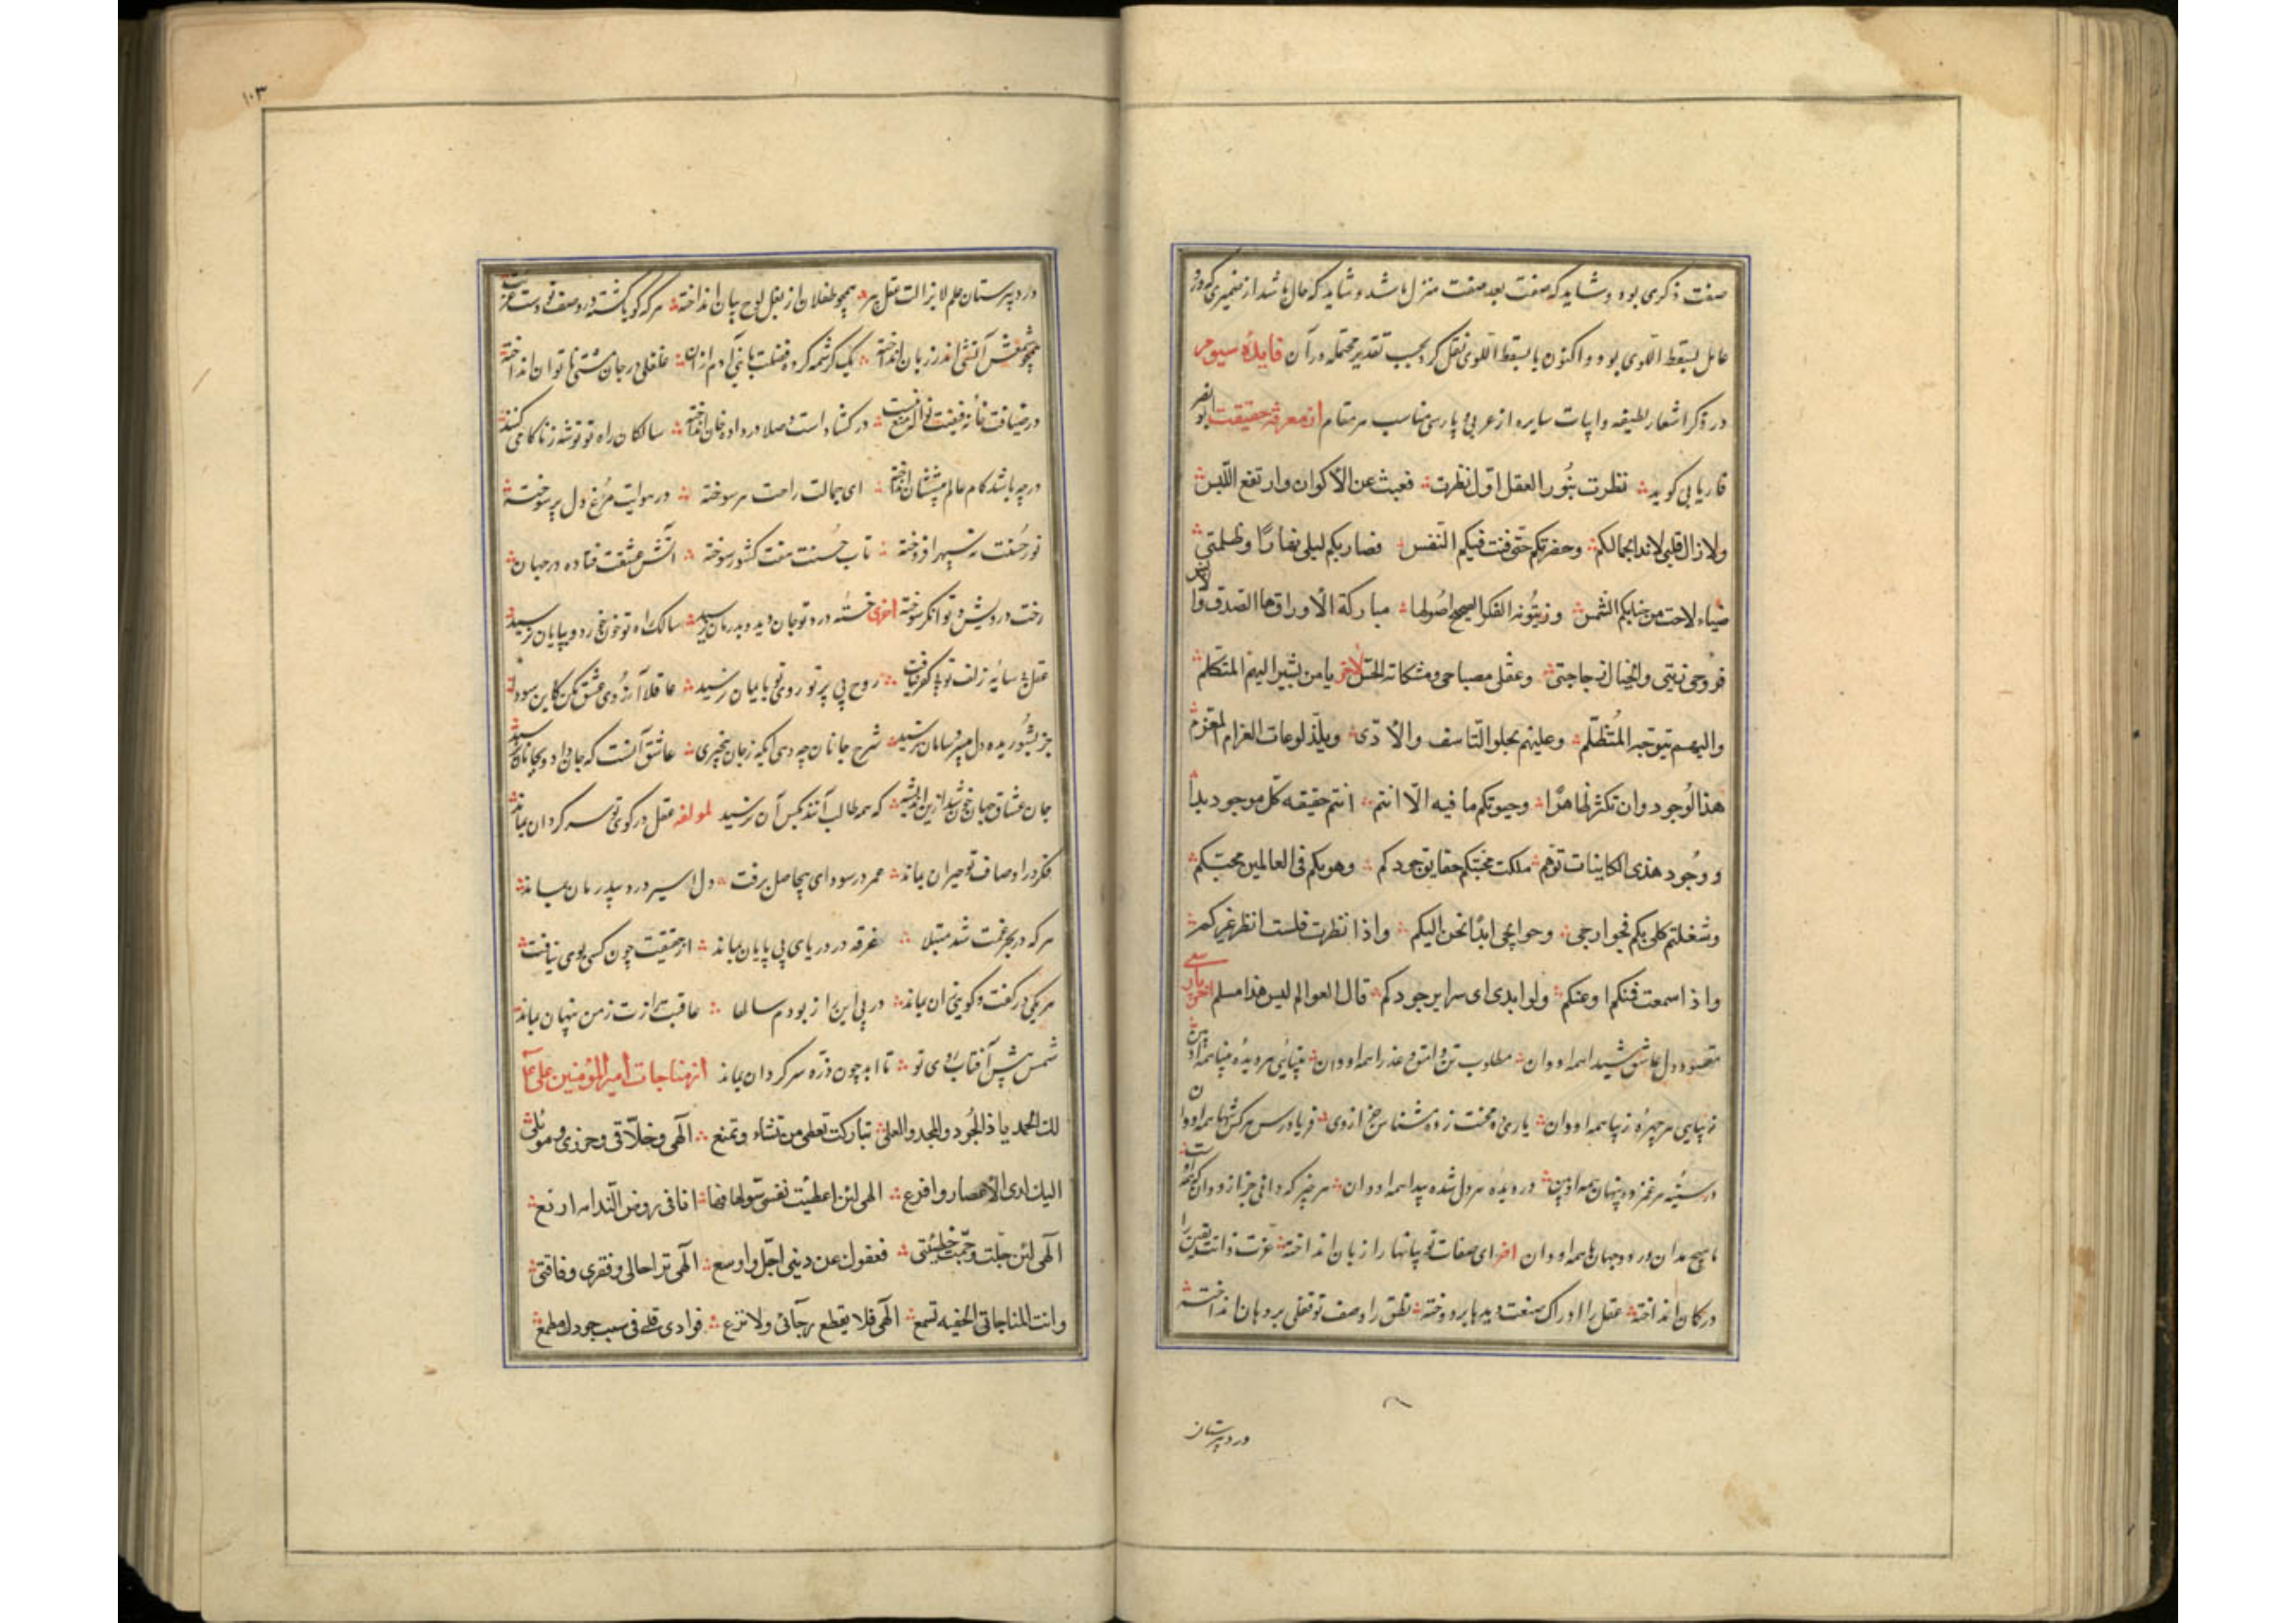 صفت ذکری بود و شاید که صفت بعد صفت منزل باشد و شاید که حال باشد از ضمیری که در
عامل بسقط اللوی بود و اکنون با بسقط اللوی نقل کرد بحسب تقدیر محتمله در آن فایدهٔ سیوم
در ذکر اشعار لطیفه و ابیات سایره از عربی و پارسی مناسب هر مقام از معرفة حقیقت ابو نصر
فاریابی کوید نظرت بنور العقل اول نظرة فغبت عن الاکوان وارتفع اللبس
ولا زال قلبی لائذا بجمالکم وحضرتکم حتی فنت فیکم النفس فصار بکم لیلی نهارًا وظلمتی
ضیاء لاحت من جنابکم الشمس وزیتونة الفکر الصحیح اصولها مبارکة الاوراق ها الصدق و
فروحی زیتی والخیال زجاجتی وعقلی مصباحی ومشکاته الحس لآخر یا من یشیر الیهم المتکلم
والیهم یتوجه المتظلم وعلیهم یحلو التاسف والاذی ویلذ لوعات الغرام المغرم
هذا الوجود وان تکثر ظاهرًا وحیوتکم ما فیه الا انتم انتم حقیقه کل موجود بدا
ووجود هذی الکاینات توهم ملکت محبتکم حقایق وجودکم وهویکم فی العالمین محبتکم
وشغلتم کلی بکم فجوارحی وحوایجی ابدًا تحن الیکم واذا نظرت فلست انظر غیرکم
واذا سمعت فنکم او عنکم ولو ابدی ای سرایر جودکم قال العوالم لیس هذا مسلم
مقصود دل عاشق شیدا همه او دان مطلوب تن وامق و عذرا همه او دان بینائی هر دیدهٔ بینا همه او
زیبایی هر چهرهٔ زیبا همه او دان یاری ده محنت زده مشناس جز از وی فریادرس هر کس تنها همه او دان
در سینه هر غمزده پنهان همه او بین در دیدهٔ هر دل شده پیدا همه او دان هر چیز که دانی جز از او دان که همه اوست
یا هیچ مدان در دو جهان یا همه او دان اخر ای صفات تو بیانها را زبان انداخته عزت ذاتت یقین را
در کمان انداخته عقل را ادراک صنعت دیدها بردوخته نطق را وصف تو قفلی بر دهان انداخته
در دبیرستان
۱۰۳
در دبیرستان علم لایزالت عقل پیر همچو طفلان از بغل لوح بیان انداخته هر که کویا کشته در وصف تو دست عزت
همچو شمعش آتشی اندر زبان انداخته یک کرشمه کرده فضلت با بنی آدم از آن غلغلی در جان مشتی ناتوان انداخته
در کشاد است و صلا در داده خوان انداخته سالکان راه تو توشه ز ناکامی کنند
در چه باشد کام عالم پیششان انداخته ای جمالت راحت هر سوخته در هوایت مرغ دل پر سوخته
نور حسنت نه سپهر افروخته تاب حسنت هفت کشور سوخته آتش عشقت فتاده در جهان
رخت درویش و توانکر سوخته اخری خستهٔ درد تو جان دید و بدرمان نرسید سالک راه تو خون خورد و بپایان نرسید
روح بی پرتو روی تو بایمان نرسید عاقلا آرزوی عشق مکن کاین سودا
جز بشوریده دل بیسر و سامان نرسید شرح جانان چه دهی ایکه ز جان بیخبری عاشق آنست که جان داد و بجانان نرسید
که همه طالب آنند و کس آن نرسید لمولفه عقل در کوی تو سرکردان بماند
فکر در اوصاف تو حیران بماند عمر در سودای بیحاصل برفت دل اسیر درد بیدرمان بماند
هر که در بحر غمت شد مبتلا غرقه در دریای بی پایان بماند از حقیقت چون کسی بوی نیافت
هر یکی در کفت و کوی آن بماند در پی این راز بودم سالها عاقبت رازت ز من پنهان بماند
شمس پیش آفتاب روی تو تا ابد چون ذره سرکردان بماند از مناجات امیر المؤمنین علی
لك الحمد یا ذا الجود والمجد والعلی تبارکت تعطی من تشاء وتمنع الهی وخلاقی وحرزی وموئلی
الیك لدی الاعسار وافزع الهی لئن اعطیت نفسی سؤلها فها انا فی روض الندامه ارتع
الهی لئن جلت وجمت خطیئتی فعفوك عن ذنبی اجل واوسع الهی تری حالی وفقری وفاقتی
وانت المناجاتی الخفیه تسمع الهی فلا تقطع رجائی ولا تزغ فوادی فلی فی سیب جودك مطمع